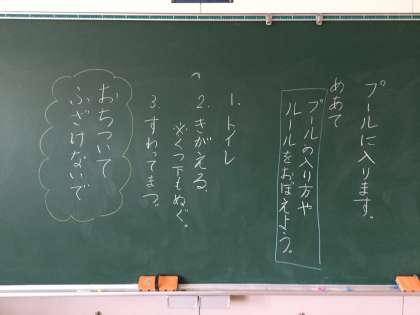 プールに入ります。
めあて
プールの入り方や
ルールをおぼえよう。
1. トイレ
2. きがえる
※くつ下もぬぐ。
3. すわってまつ。
おちついて
ふざけないで